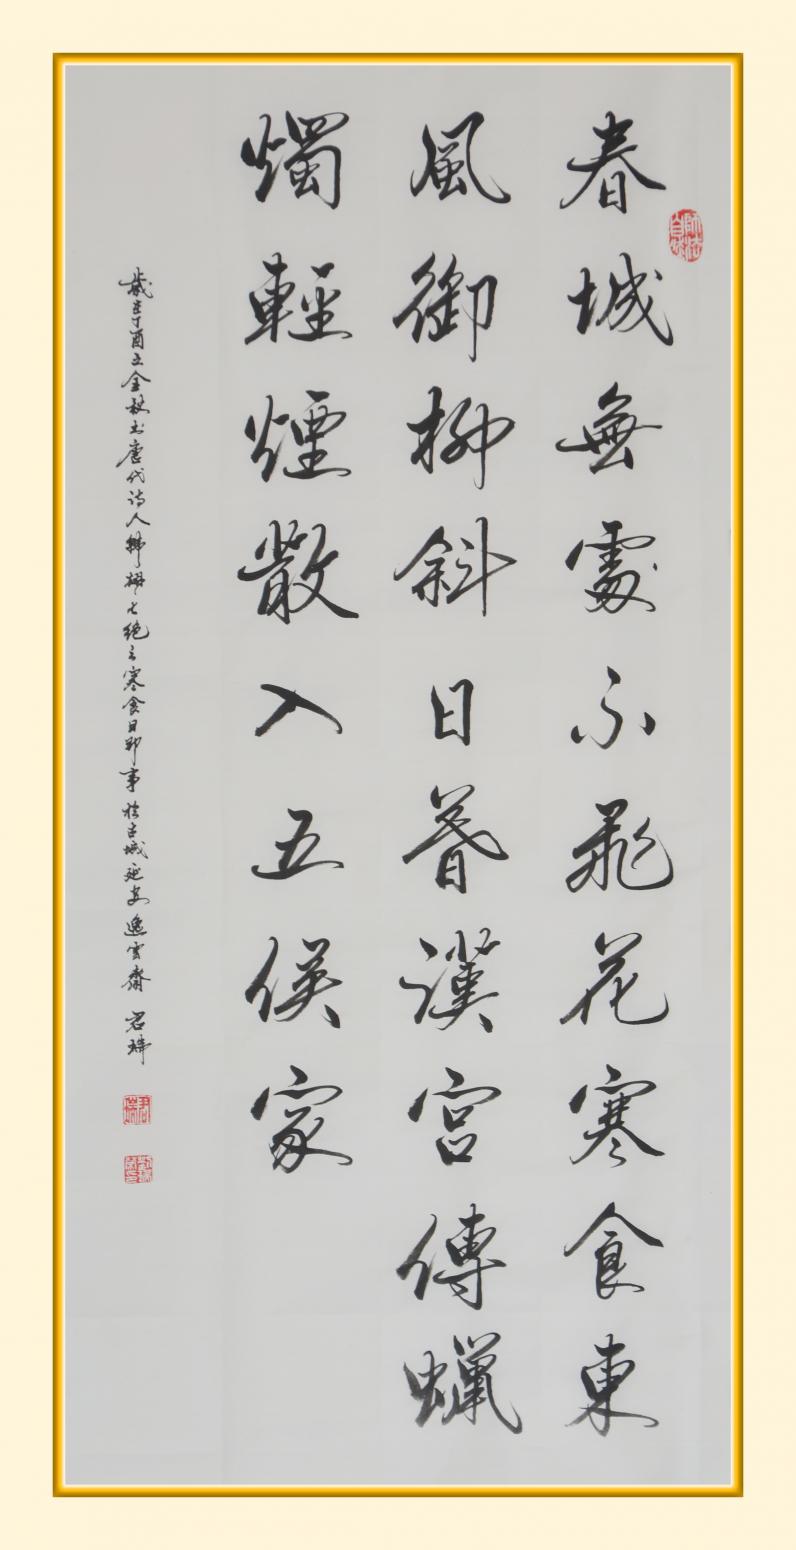 春城無處不飛花寒食東
風御柳斜日暮漢宮傳蠟
燭輕煙散入五侯家
歲在丁酉之金秋書唐代诗人韩翃七绝之寒食日即事於古城延安逸雲齋 君瑞